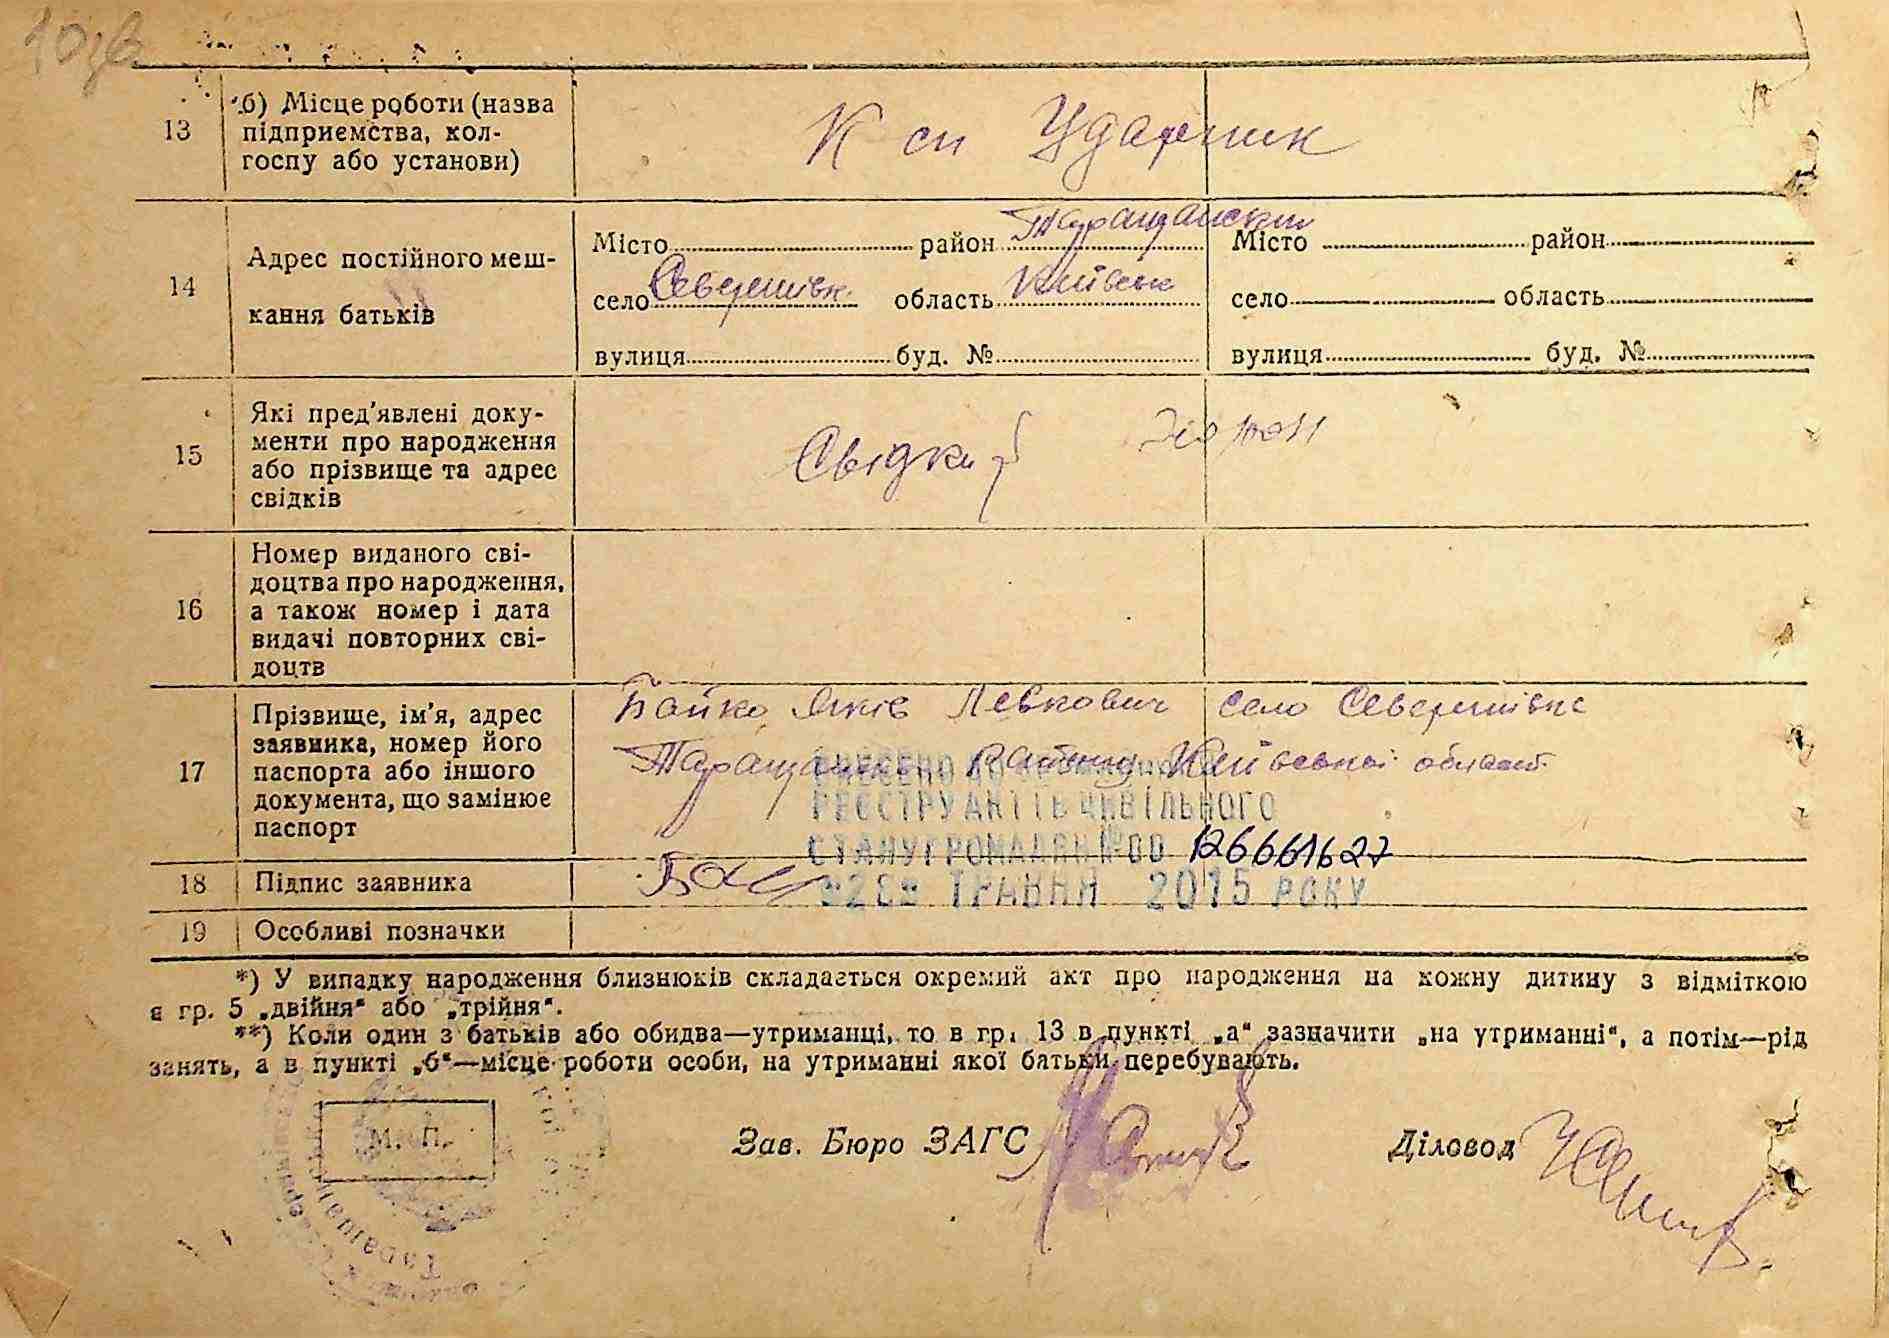 13
б) Місце роботи (назва
підприємства, кол-
госпу або установи)
К сп Ударник
14
Адрес постійного меш-
кання батьків
Місто район Таращанский
село Северинівк. область Київськ
вулиця буд. №
Місто район
село область
вулиця буд. №
15
Які пред'явлені доку-
менти про народження
або прізвище та адрес
свідків
Свідки
16
Номер виданого сві-
доцтва про народження,
а також номер і дата
видачі повторних сві-
доцтв
17
Прізвище, ім'я, адрес
заявника, номер його
паспорта або іншого
документа, що замінює
паспорт
Бойко Яків Левкович село Северинівка
Таращанск району Київської област
ВНЕСЕНО ДО
РЕЄСТРУ АКТІВ ЦИВІЛЬНОГО
СТАНУ ГРОМАДЯН № 00 126661627
«28» ТРАВНЯ 2015 РОКУ
18
Підпис заявника
19
Особливі позначки
*) У випадку народження близнюків складається окремий акт про народження на кожну дитину з відміткою
в гр. 5 „двійня“ або „трійня“.
**) Коли один з батьків або обидва—утриманці, то в гр. 13 в пункті „а“ зазначити „на утриманні“, а потім—рід
занять, а в пункті „б“—місце роботи особи, на утриманні якої батьки перебувають.
М. П.
Зав. Бюро ЗАГС
Діловод